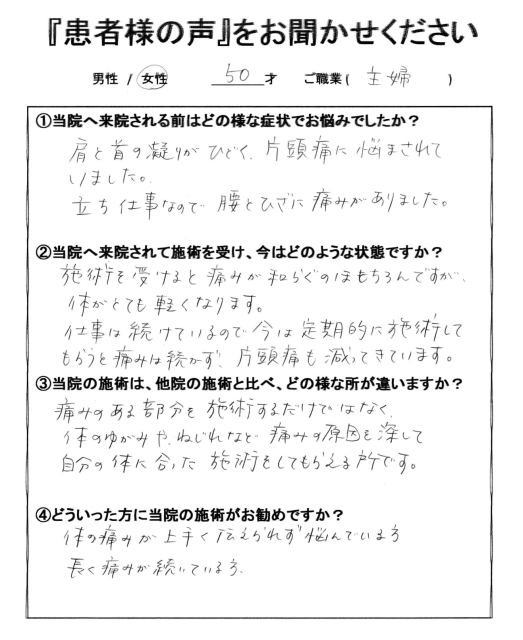 『患者様の声』をお聞かせください
男性 / 女性 50 才 ご職業( 主婦 )
①当院へ来院される前はどの様な症状でお悩みでしたか？
肩と首の凝りがひどく、片頭痛に悩まされて
いました。
立ち仕事なので腰とひざに痛みがありました。
②当院へ来院されて施術を受け、今はどのような状態ですか？
施術を受けると痛みが和らぐのはもちろんですが、
体がとても軽くなります。
仕事は続けているので今は定期的に施術して
もらうと痛みは続かず、片頭痛も減ってきています。
③当院の施術は、他院の施術と比べ、どの様な所が違いますか？
痛みのある部分を施術するだけではなく、
体のゆがみや、ねじれなど痛みの原因を探して
自分の体に合った施術をしてもらえる所です。
④どういった方に当院の施術がお勧めですか？
体の痛みが上手く伝えられず悩んでいる方
長く痛みが続いている方。